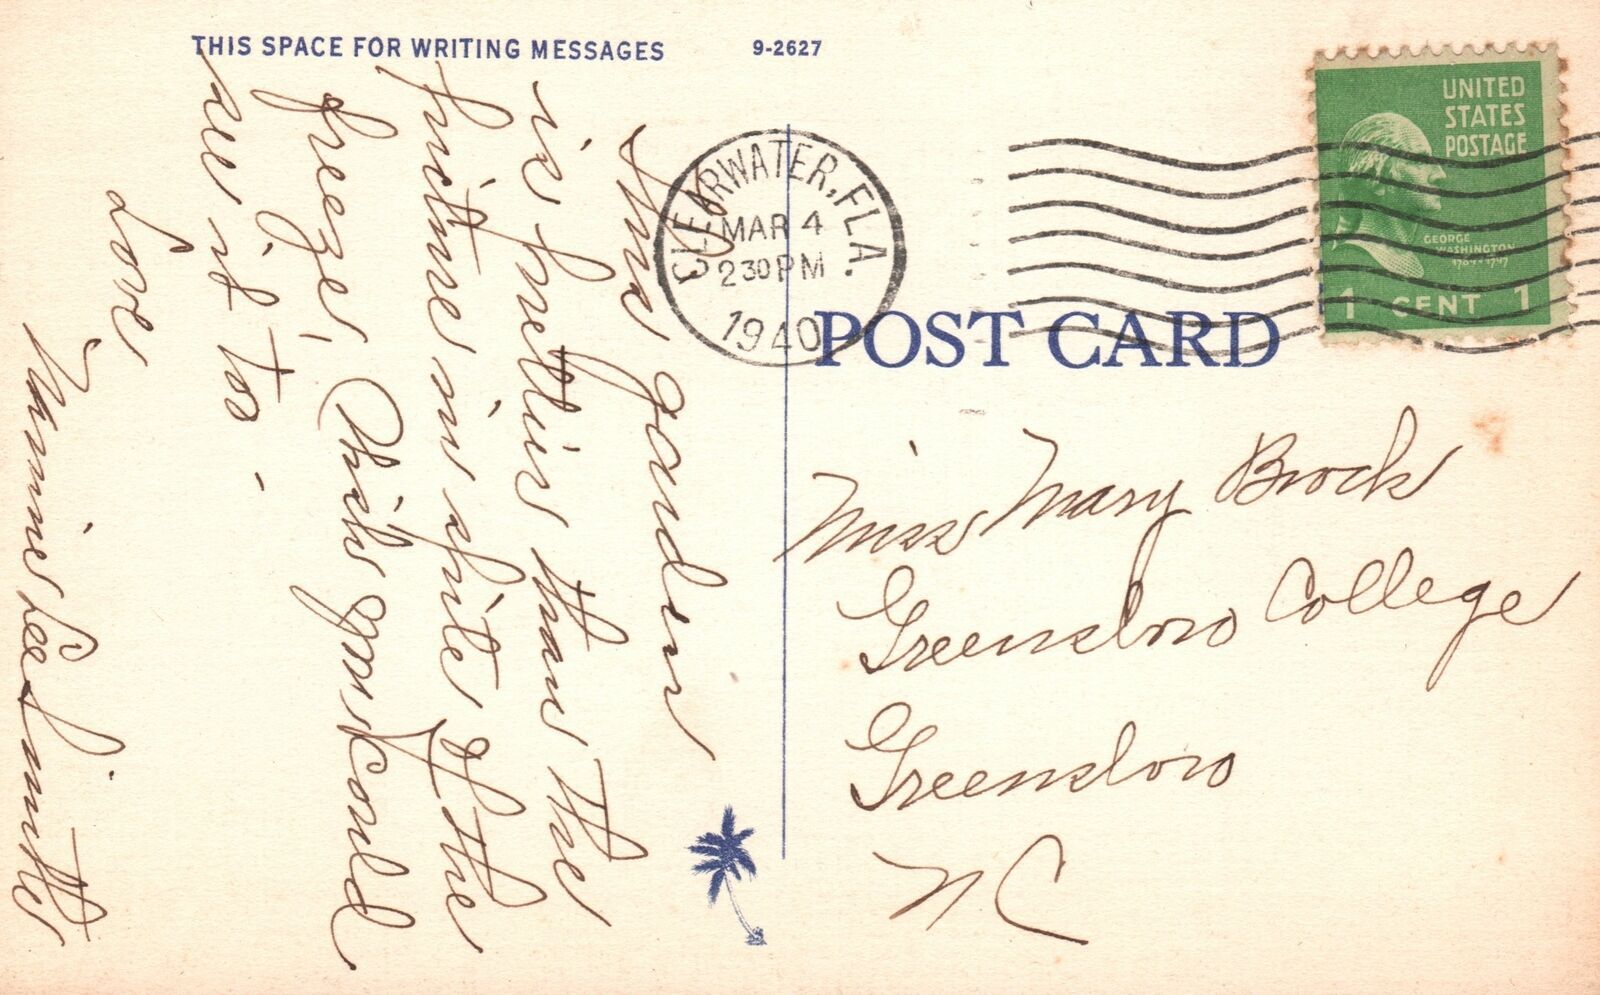 THIS SPACE FOR WRITING MESSAGES
9-2627
This garden
is prettier than the
picture in spite of the
freeze, Wish you could
see it too -
Love
Minnie Lee
CLEARWATER, FLA.
MAR 4
2 30 PM
1940
UNITED
STATES
POSTAGE
GEORGE
WASHINGTON
1789-1797
1 CENT 1
POST CARD
Miss Mary Brock
Greensboro College
Greensboro
N C